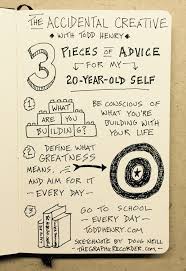 THE ACCIDENTAL CREATIVE
WITH TODD HENRY
3 PIECES OF ADVICE
FOR MY
20-YEAR-OLD SELF
1 WHAT
ARE YOU
BUILDING?
BE CONSCIOUS OF
WHAT YOU'RE
BUILDING WITH
YOUR LIFE
2 DEFINE WHAT
GREATNESS
MEANS,
AND AIM FOR IT
—EVERY DAY—
3 GO TO SCHOOL
—EVERY DAY—
TODDHENRY.COM
SKETCHNOTE BY DOUG NEILL
-THEGRAPHICRECORDER.COM-